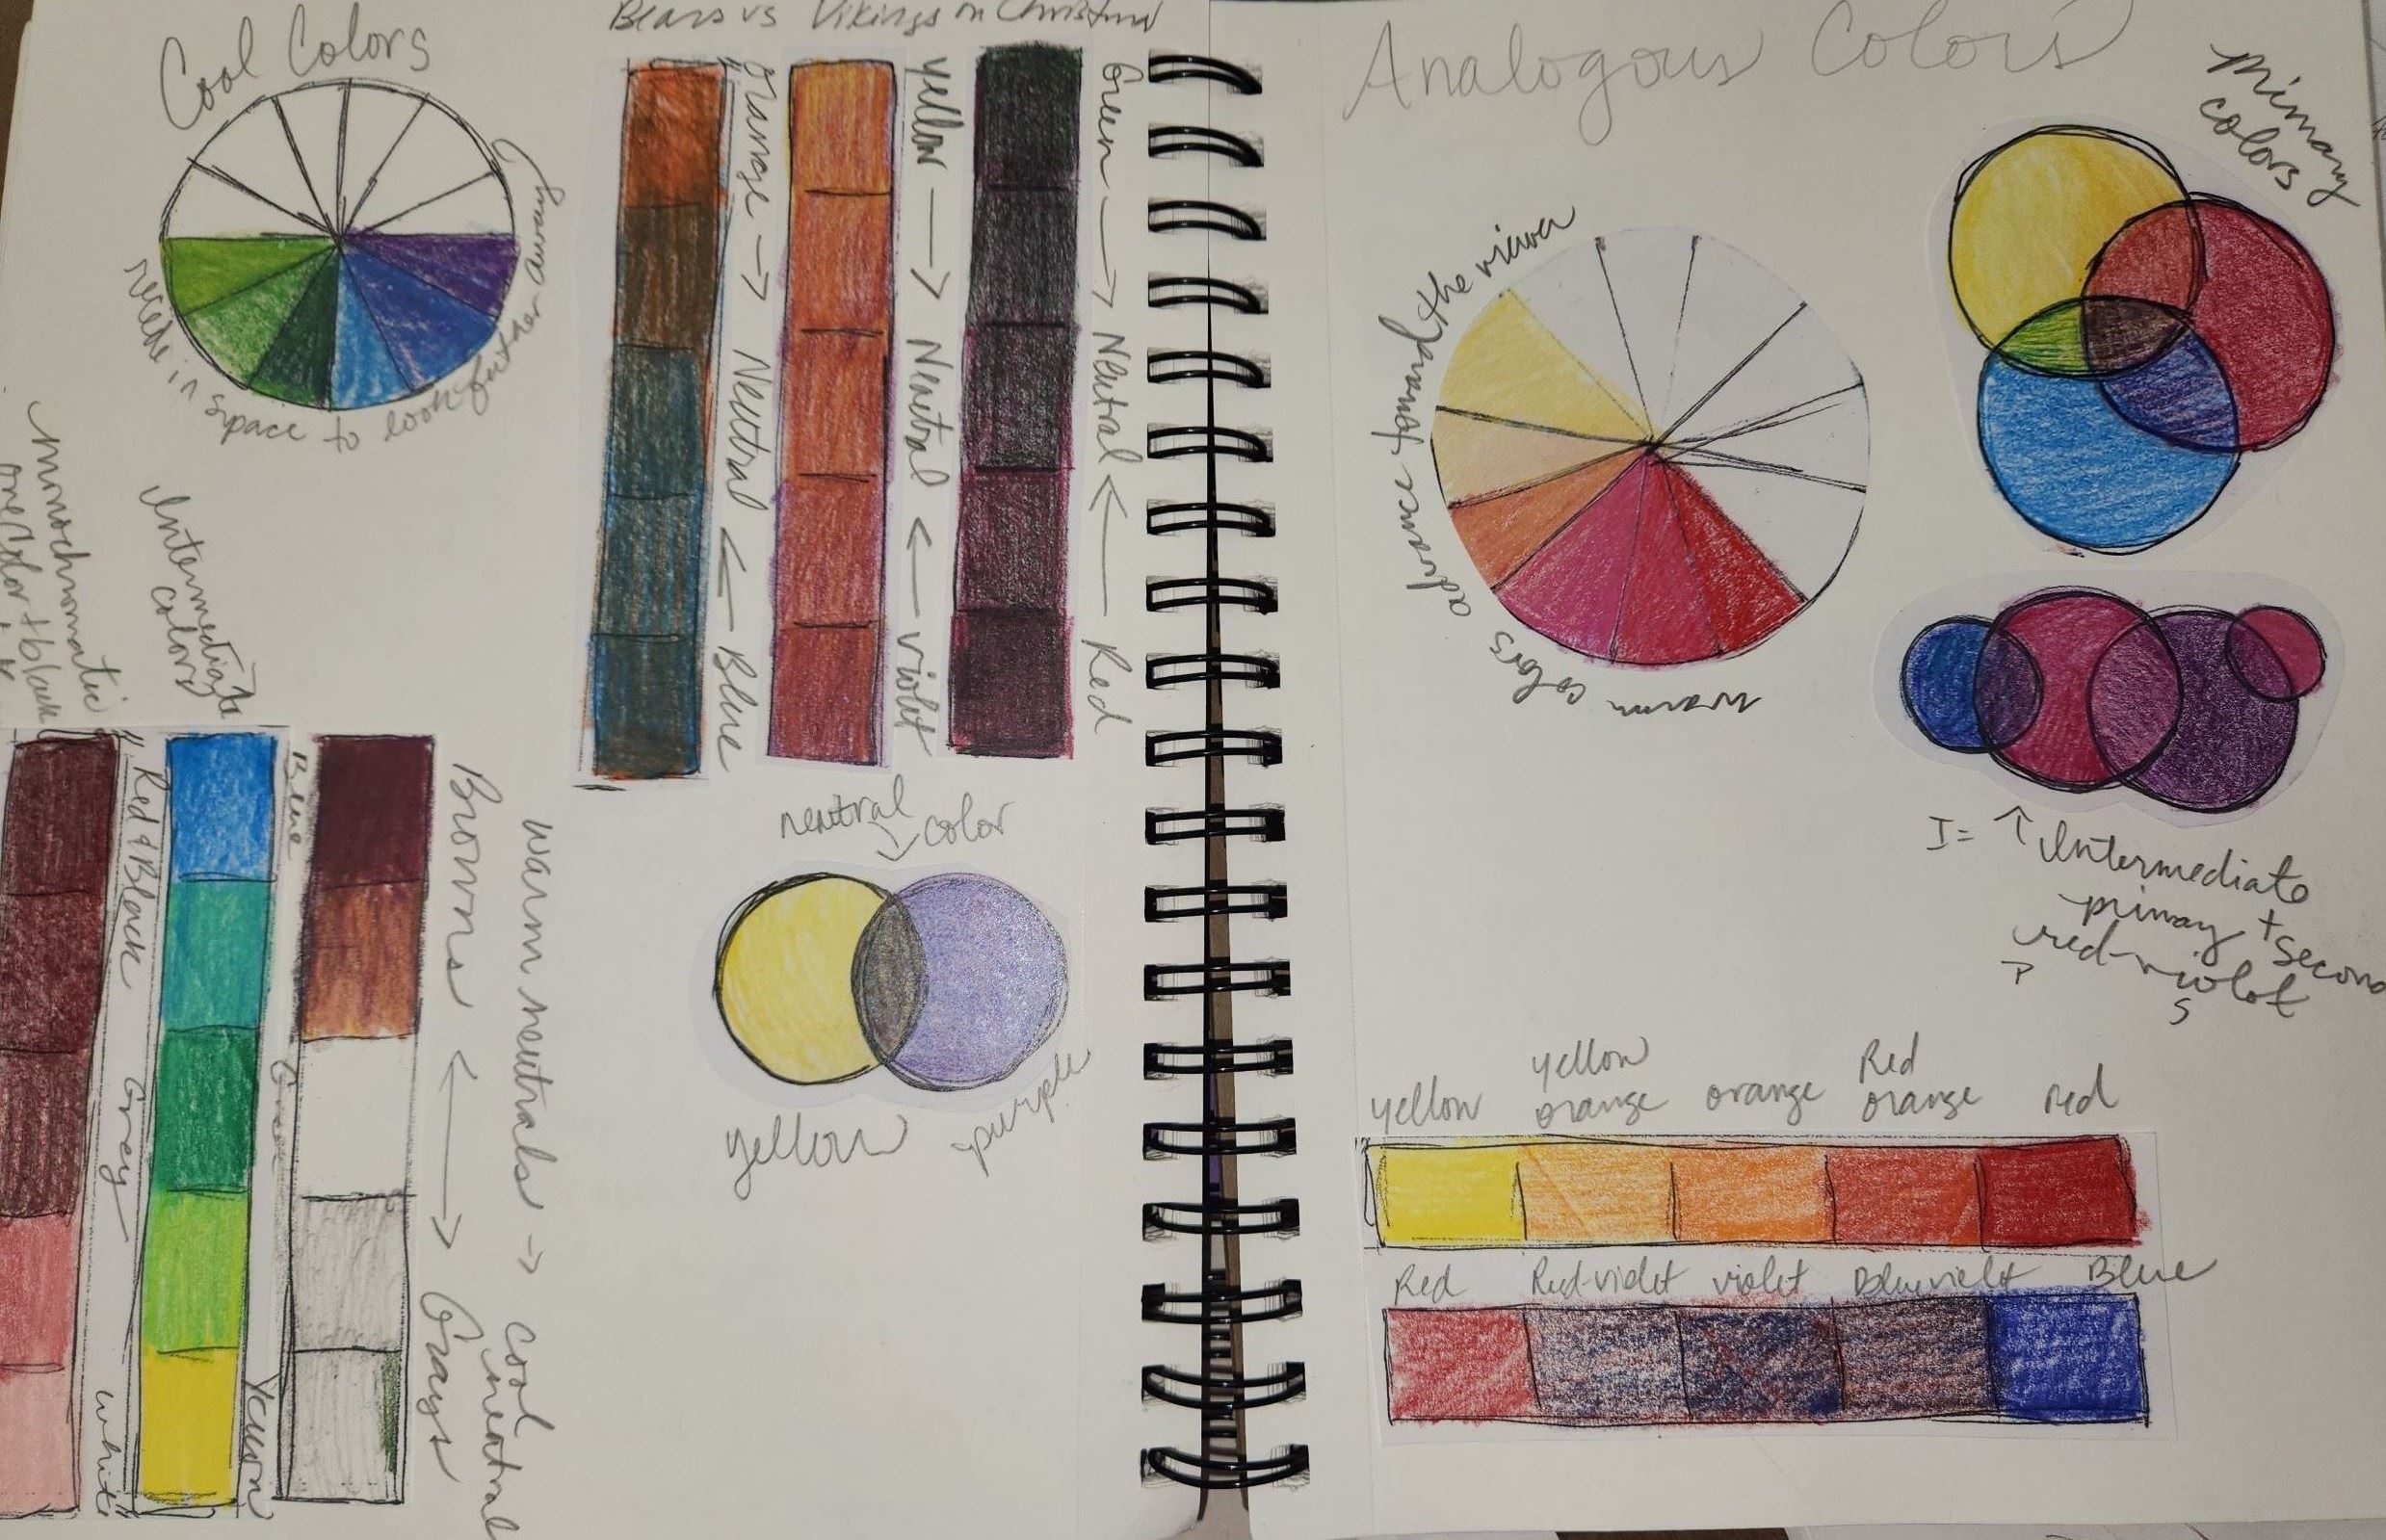 Cool Colors
recede in space to look further away
Bears vs Vikings on Christmas
Orange → Neutral ← Blue
yellow → Neutral ← violet
Green → Neutral ← Red
monochromatic
one color + black
Intermediate
colors
Red + Black Gray white
Blue Green Yellow
Browns ↔ Grays
warm neutrals → cool
neutral
neutral
color
yellow
purple
Analogous Colors
warm colors advance toward the viewer
Primary
colors
I = ↑ Intermediate
primary + second
red-violet
P S
yellow
yellow
orange
orange
Red
orange
red
Red
Red-violet
violet
Blue violet
Blue